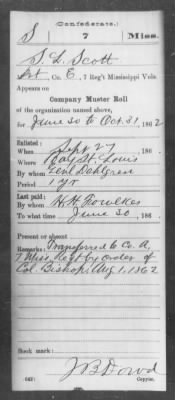 (Confederate.)
S 7 Miss.
S. L. Scott
Co. E, 7 Reg't Mississippi Vols.
Appears on
Company Muster Roll
of the organization named above,
for June 30 to Oct. 31, 1862
Enlisted:
When Sept 27, 186
Where Bay St. Louis
By whom Genl Dahlgren
Period 1 yr
Last paid:
By whom H. H. Fowlkes
To what time June 30, 186
Present or absent
Remarks: Transferred to Co. A,
7 Miss. Regt by order of
Col. Bishop, Aug 1, 1862
Book mark:
J B Dowd
(642) Copyist.